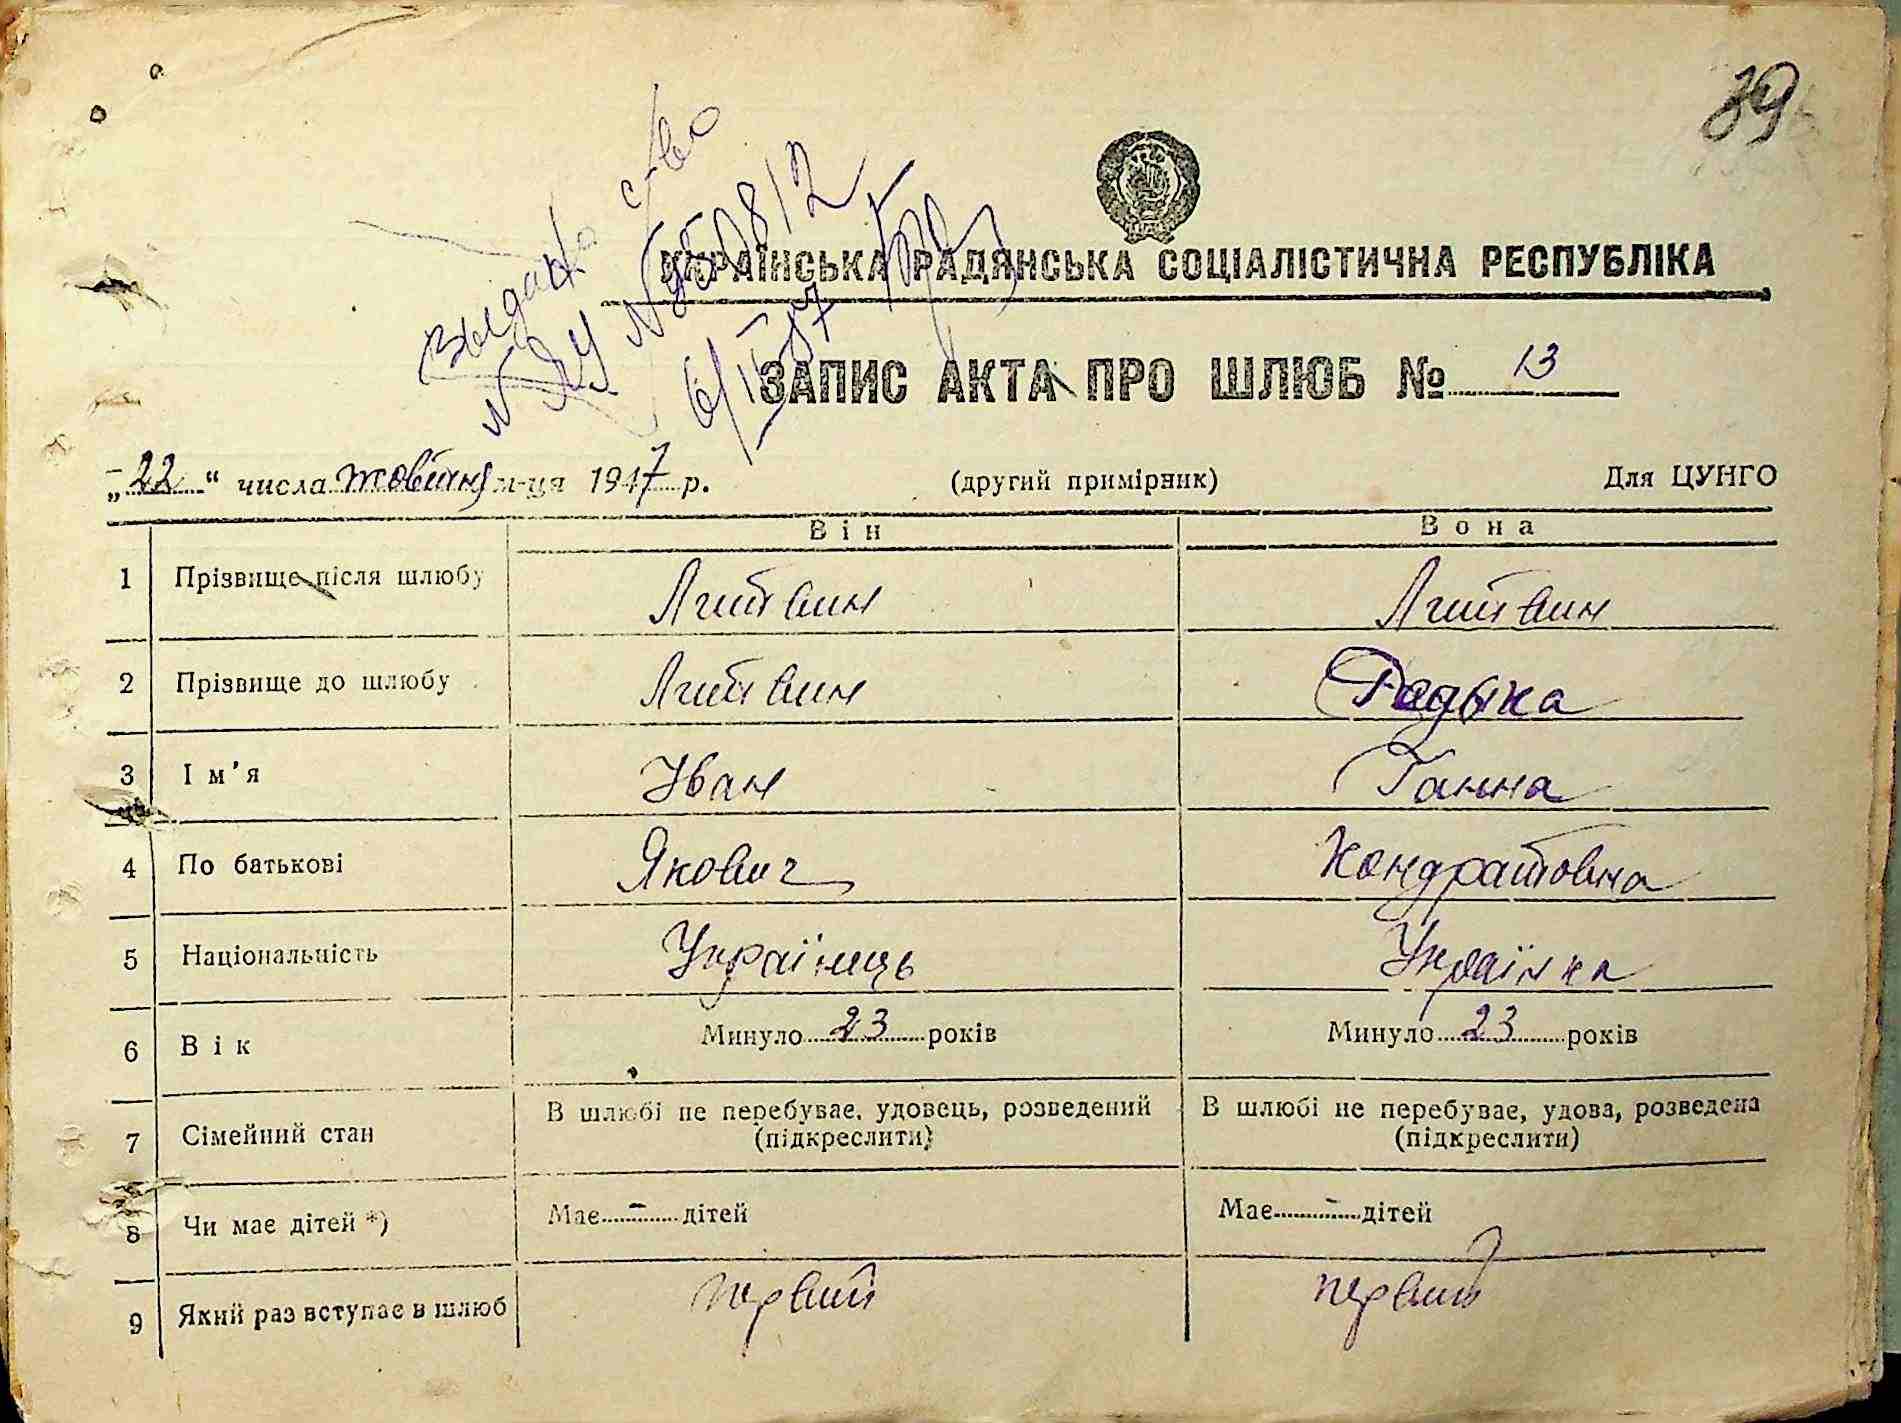 39
Выдано с/во
УКРАЇНСЬКА РАДЯНСЬКА СОЦІАЛІСТИЧНА РЕСПУБЛІКА
ЗАПИС АКТА ПРО ШЛЮБ № 13
„22“ числа жовтня м-ця 1947 р. (другий примірник) Для ЦУНГО
Він Вона
1 Прізвище після шлюбу Литвин Литвин
2 Прізвище до шлюбу Литвин
3 Ім'я Іван Ганна
4 По батькові Якович Кондратовна
5 Національність Українець Українка
6 Вік Минуло 23 років Минуло 23 років
7 Сімейний стан В шлюбі не перебуває, удовець, розведений (підкреслити) В шлюбі не перебуває, удова, розведена (підкреслити)
8 Чи має дітей *) Має - дітей Має - дітей
9 Який раз вступає в шлюб первий первий